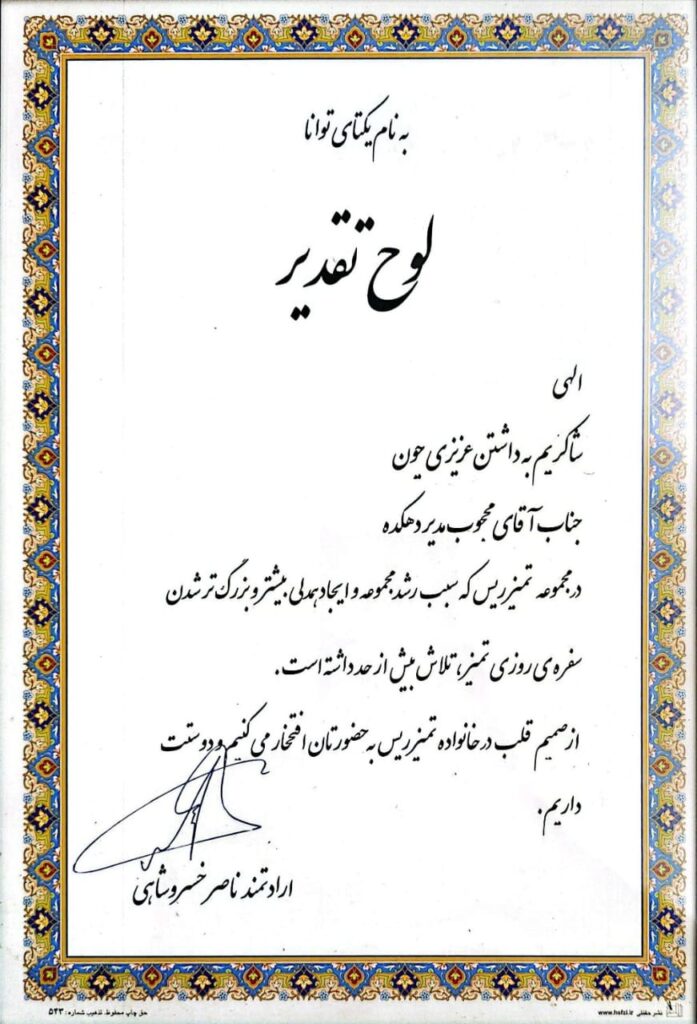 به نام یکتای توانا
لوح تقدیر
الهی
شاکریم به داشتن عزیزی چون
جناب آقای محجوب مدیر دهکده
در مجموعه تمیزریس که سبب رشد مجموعه و ایجاد همدلی بیشتر و بزرگ تر شدن
سفره ی روزی تمیز، تلاش بیش از حد داشته است.
از صمیم قلب در خانواده تمیزریس به حضورتان افتخار می کنیم و دوستت
داریم.
ارادتمند ناصر خسروشاهی
حق چاپ محفوظ. تذهیب شماره: ۵۴۳
www.hafzi.ir نشر حفظی